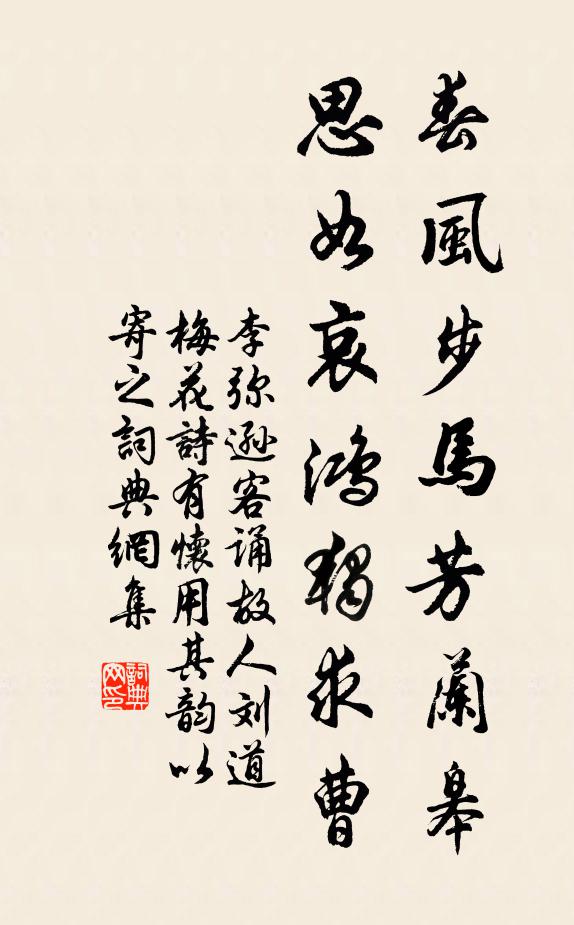 春風步馬芳蘭皋
思如哀鴻獨求曹
李弥遜客誦故人刘道
梅花詩有懷用其韵以
寄之詞典網集
詞典网印